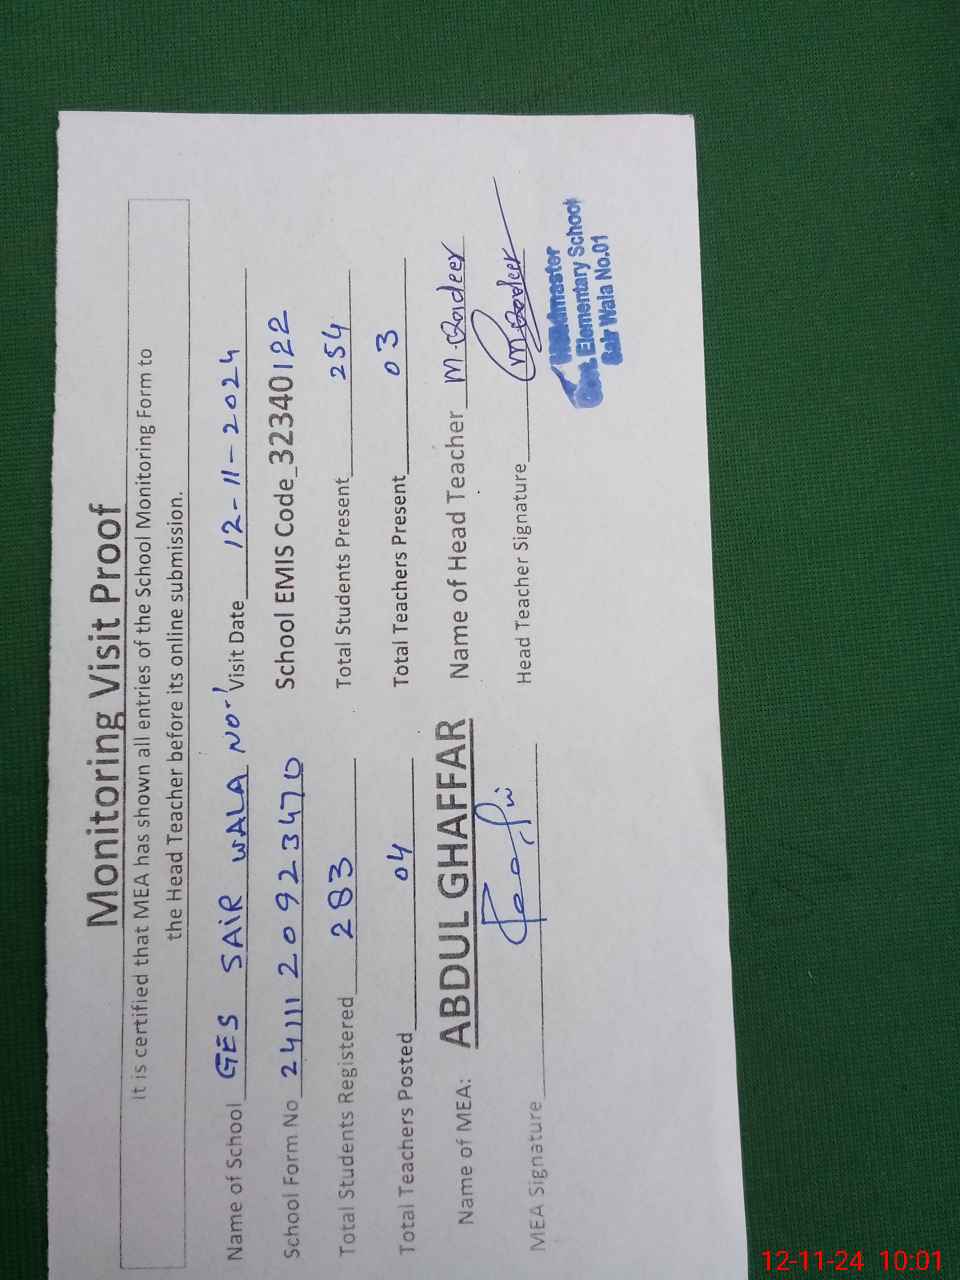 Monitoring Visit Proof
It is certified that MEA has shown all entries of the School Monitoring Form to
the Head Teacher before its online submission.
Name of School GES SAIR WALA NO-1 Visit Date 12-11-2024
School Form No 2411120923470 School EMIS Code 32340122
Total Students Registered 283 Total Students Present 254
Total Teachers Posted 04 Total Teachers Present 03
Name of MEA: ABDUL GHAFFAR Name of Head Teacher M. Qadeer
MEA Signature Head Teacher Signature M Qadeer
Headmaster
Govt. Elementary School
Sair Wala No.01
12-11-24 10:01